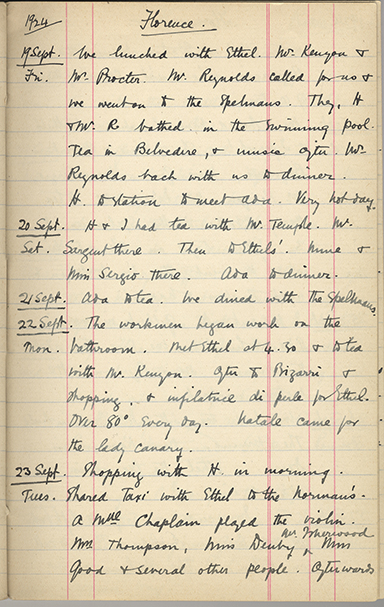 1924 Florence.
19 Sept. We lunched with Ethel. Mr. Kenyon &
Fri. Mr. Procter. Mr. Reynolds called for us &
we went on to the Spelmans. They, H
& Mr. R bathed in the swimming pool.
Tea in Belvedere, & music after. Mr.
Reynolds back with us to dinner.
H. to station to meet Ada. Very hot day.
20 Sept. H & I had tea with Mr. Temple. Mr.
Sat. Sargent there. Then to Ethel's. Mme &
Miss Sergio there. Ada to dinner.
21 Sept. Ada to tea. We dined with the Spelmans.
22 Sept. The workmen began work on the
Mon. bathroom. Met Ethel at 4.30 & to tea
with Mr. Kenyon. After to Bizarri &
shopping, & infilatrice di perle for Ethel.
Over 80° every day. Natale came for
the lady canary.
23 Sept. Shopping with H. in morning.
Tues. Shared taxi with Ethel to the Norman's.
A Mlle Chaplain played the violin.
Mr. Isherwood
Mrs Thompson, Miss Denby, Miss
Good & several other people. Afterwards